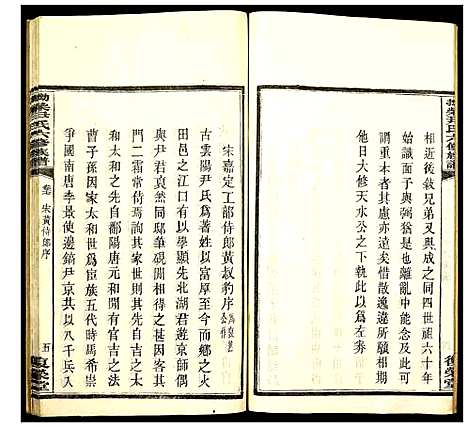 相近後敘兄弟又與成之同四世祖六十年
面而始與弼猶是也離亂中能念及此可
謂重本者其慮亦遠矣惜散逸違所謂副
他日大修天水公之下執此以為左券
復榮堂
宋嘉定工部侍郎黃叔豹序
古雲陽尹氏為著姓以富厚至今而鄉之火
田邑之江口有以學顯先北湖君遊京師偶
與尹君袁然同邸筆硯閒相得甚因客其
門二霜常倚焉詢其家世乃吉州刺史尹公
和太和之先自鄱陽唐元和閒有官吉之法
子孫因家太和世為宦族五代時馬希崇
爭國南唐李景使邊鎬尹京共以八千兵入
宋黃侍郎序
五
復榮堂